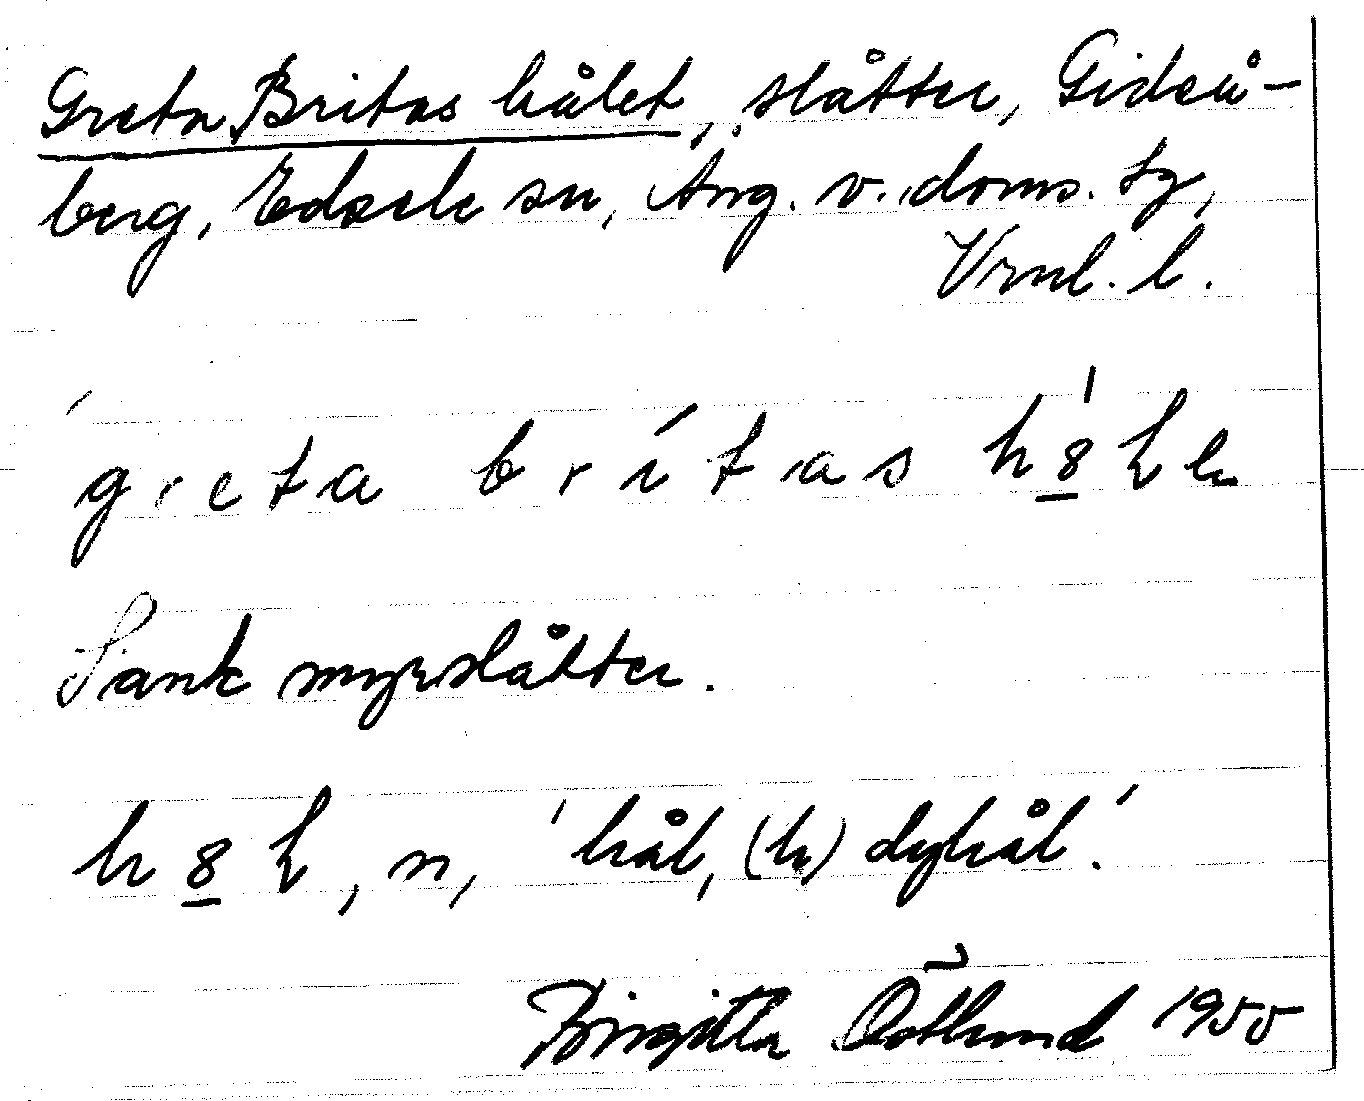 Greta Britas hålet, slåtter, Gideå-
berg, Edsele sn, Ång. v. doms. sg,
Vrnl. l.
greta britas
Sank myrslåtter.
n, 'hål, dyhål'.
Birgitta Östlund 1955